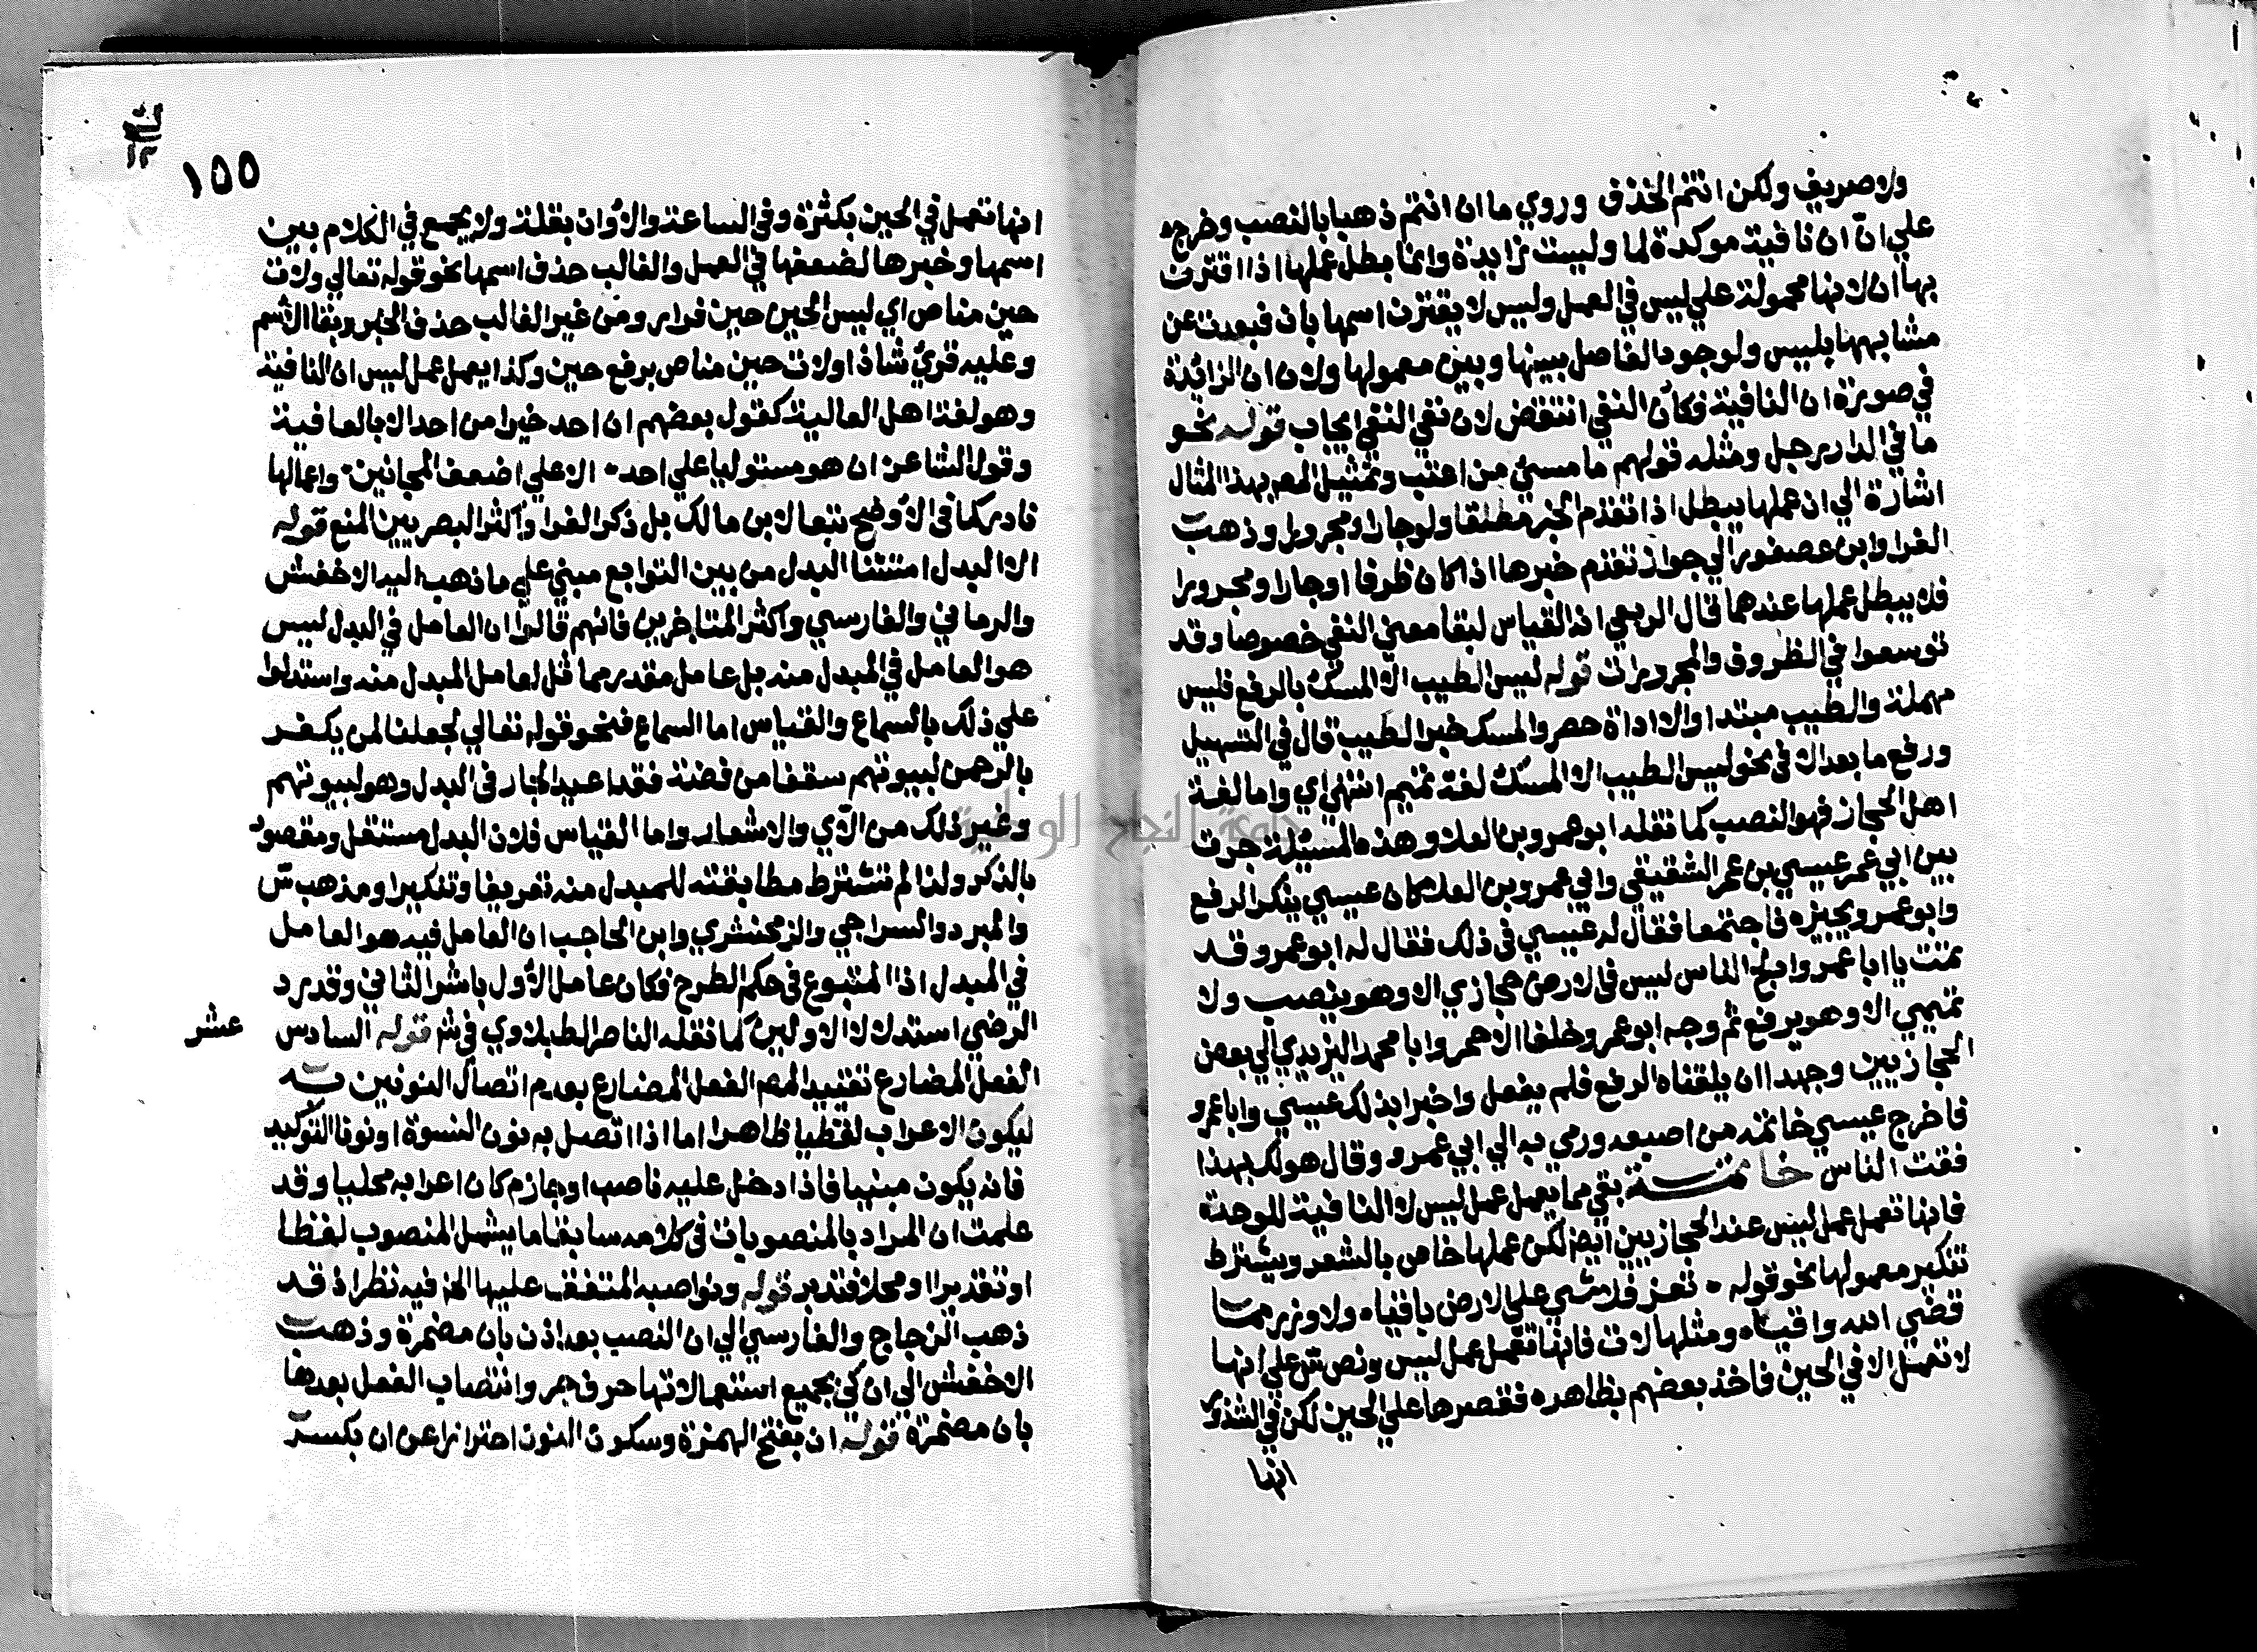 ولا صريف ولكن انتم الخذف وروي ما ان انتم ذهبا بالنصب وخرجه
علي ان ان نافية موكدة لما وليست زايدة وانما بطل عملها اذا اقترن
بها ان لانها محمولة علي ليس في العمل وليس لا يقترن اسمها بان فبعدت عن
مشابهها بليس ولوجود الفاصل بينها وبين معمولها ولان ان الزائدة
في صورة ان النافية فكان النفي انتقض لان نفي النفي ايجاب قوله نحو
ما في الدار رجل ومثله قولهم ما مسيئ من اعتب وتمثيل المصـ بهذا المثال
اشارة الي ان عملها يبطل اذا تقدم الخبر مطلقا ولو جارا ومجرورا وذهب
الفرا وابن عصفور الي جواز تقدم خبرها اذا كان ظرفا او جارا ومجرورا
فلا يبطل عملها عندهما قال الربعي اذ القياس لبقا معني النفي خصوصا وقد
توسعوا في الظروف والمجرورات قوله ليس الطيب الا المسك بالرفع فليس
مهملة والطيب مبتدا والا اداة حصر والمسك خبر الطيب قال في التسهيل
ورفع ما بعد الا في نحو ليس الطيب الا المسك لغة تميم انتهي اي واما لغة
اهل الحجاز فهو النصب كما نقله ابو عمرو بن العلا وهذه المسئلة جرت
بين ابي عمر عيسي بن عمر الشقيقي وابي عمرو بن العلا كان عيسي ينكر الرفع
وابو عمرو يجيزه فاجتمعا فقال له عيسي في ذلك فقال له ابو عمرو قد
نمت يا ابا عمر وادلج الناس ليس في الارض حجازي الا وهو ينصب ولا
تميمي الا وهو يرفع ثم وجه ابو عمرو خلفا الاحمر وابا محمد اليزيدي الي بعض
الحجازيين وجهدا ان يلقناه الرفع فلم يفعل واخبرا بذلك عيسي وابا عمرو
فاخرج عيسي خاتمه من اصبعه ورمي به الي ابي عمرو وقال هو لك بهذا
فقت الناس خاتمـــة بقي مما يعمل عمل ليس لا النافية للوحدة
فانها تعمل عمل ليس عند الحجازيين ايضا لكن عملها خاص بالشعر ويشترط
تنكير معمولها نحو قوله ٠ تعز فلا شي علي الارض باقيا ٠ ولا وزر مما
قضي الله واقيا ٠ ومثلها لات فانها تعمل عمل ليس ونص س علي انها
لا تعمل الا في الحين فاخذ بعضهم بظاهره فقصرها علي الحين لكن في الشذور
انها
١٥٥
انها تعمل في الحين بكثرة وفي الساعة والاوان بقلة ولا يجمع في الكلام بين
اسمها وخبرها لضعفها في العمل والغالب حذف اسمها نحو قوله تعالي ولات
حين مناص اي ليس الحين حين فرار ومن غير الغالب حذف الخبر وبقا الاسم
وعليه قرئ شاذا ولات حين مناص برفع حين وكذا يعمل عمل ليس ان النافية
وهو لغة اهل العالية كقول بعضهم ان احد خيرا من احد الا بالعافية
وقول الشاعر ان هو مستوليا علي احد ٠ الا علي اضعف المجانين ٠ واعمالها
نادر كما في الاوضح تبعا لابن مالك بل ذكر الفرا واكثر البصريين المنع قوله
الا البدل استثنا البدل من بين التوابع مبني علي ما ذهب اليه الاخفش
والرماني والفارسي واكثر المتاخرين فانهم قالوا ان العامل في البدل ليس
هو العامل في المبدل منه بل عامل مقدر مماثل لعامل المبدل منه واستدلوا
علي ذلك بالسماع والقياس اما السماع فنحو قوله تعالي لجعلنا لمن يكفر
بالرحمن لبيوتهم سقفا من فضة فقد اعيد الجار في البدل وهو لبيوتهم
وغير ذلك من الآي والاشعار واما القياس فلان البدل مستقل ومقصود
بالذكر ولذا لم تشترط مطابقته للمبدل منه تعريفا وتنكيرا ومذهب س
والمبرد والسراجي والزمخشري وابن الحاجب ان العامل فيه هو العامل
في المبدل اذ المتبوع في حكم الطرح فكان عامل الاول باشر الثاني وقد رد
الرضي استدلال الاولين كما نقله الناصر الطبلاوي في ش قوله السادس عشر
الفعل المضارع تقييد المصـ الفعل المضارع بعدم اتصال النونين به
ليكون الاعراب لفظيا ظاهرا اما اذا اتصل به نون النسوة او نونا التوكيد
فانه يكون مبنيا فاذا دخل عليه ناصب او جازم كان اعرابه محليا وقد
علمت ان المراد بالمنصوبات في كلامه سابقا ما يشمل المنصوب لفظا
او تقديرا او محلا فتدبر قوله ونواصبه المتفق عليها الخ فيه نظر اذ قد
ذهب الزجاج والفارسي الي ان النصب بعد اذن بان مضمرة وذهب
الاخفش الي ان كي في جميع استعمالاتها حرف جر وانتصاب الفعل بعدها
بان مضمرة قوله ان بفتح الهمزة وسكون النون احترازا عن ان بكسر